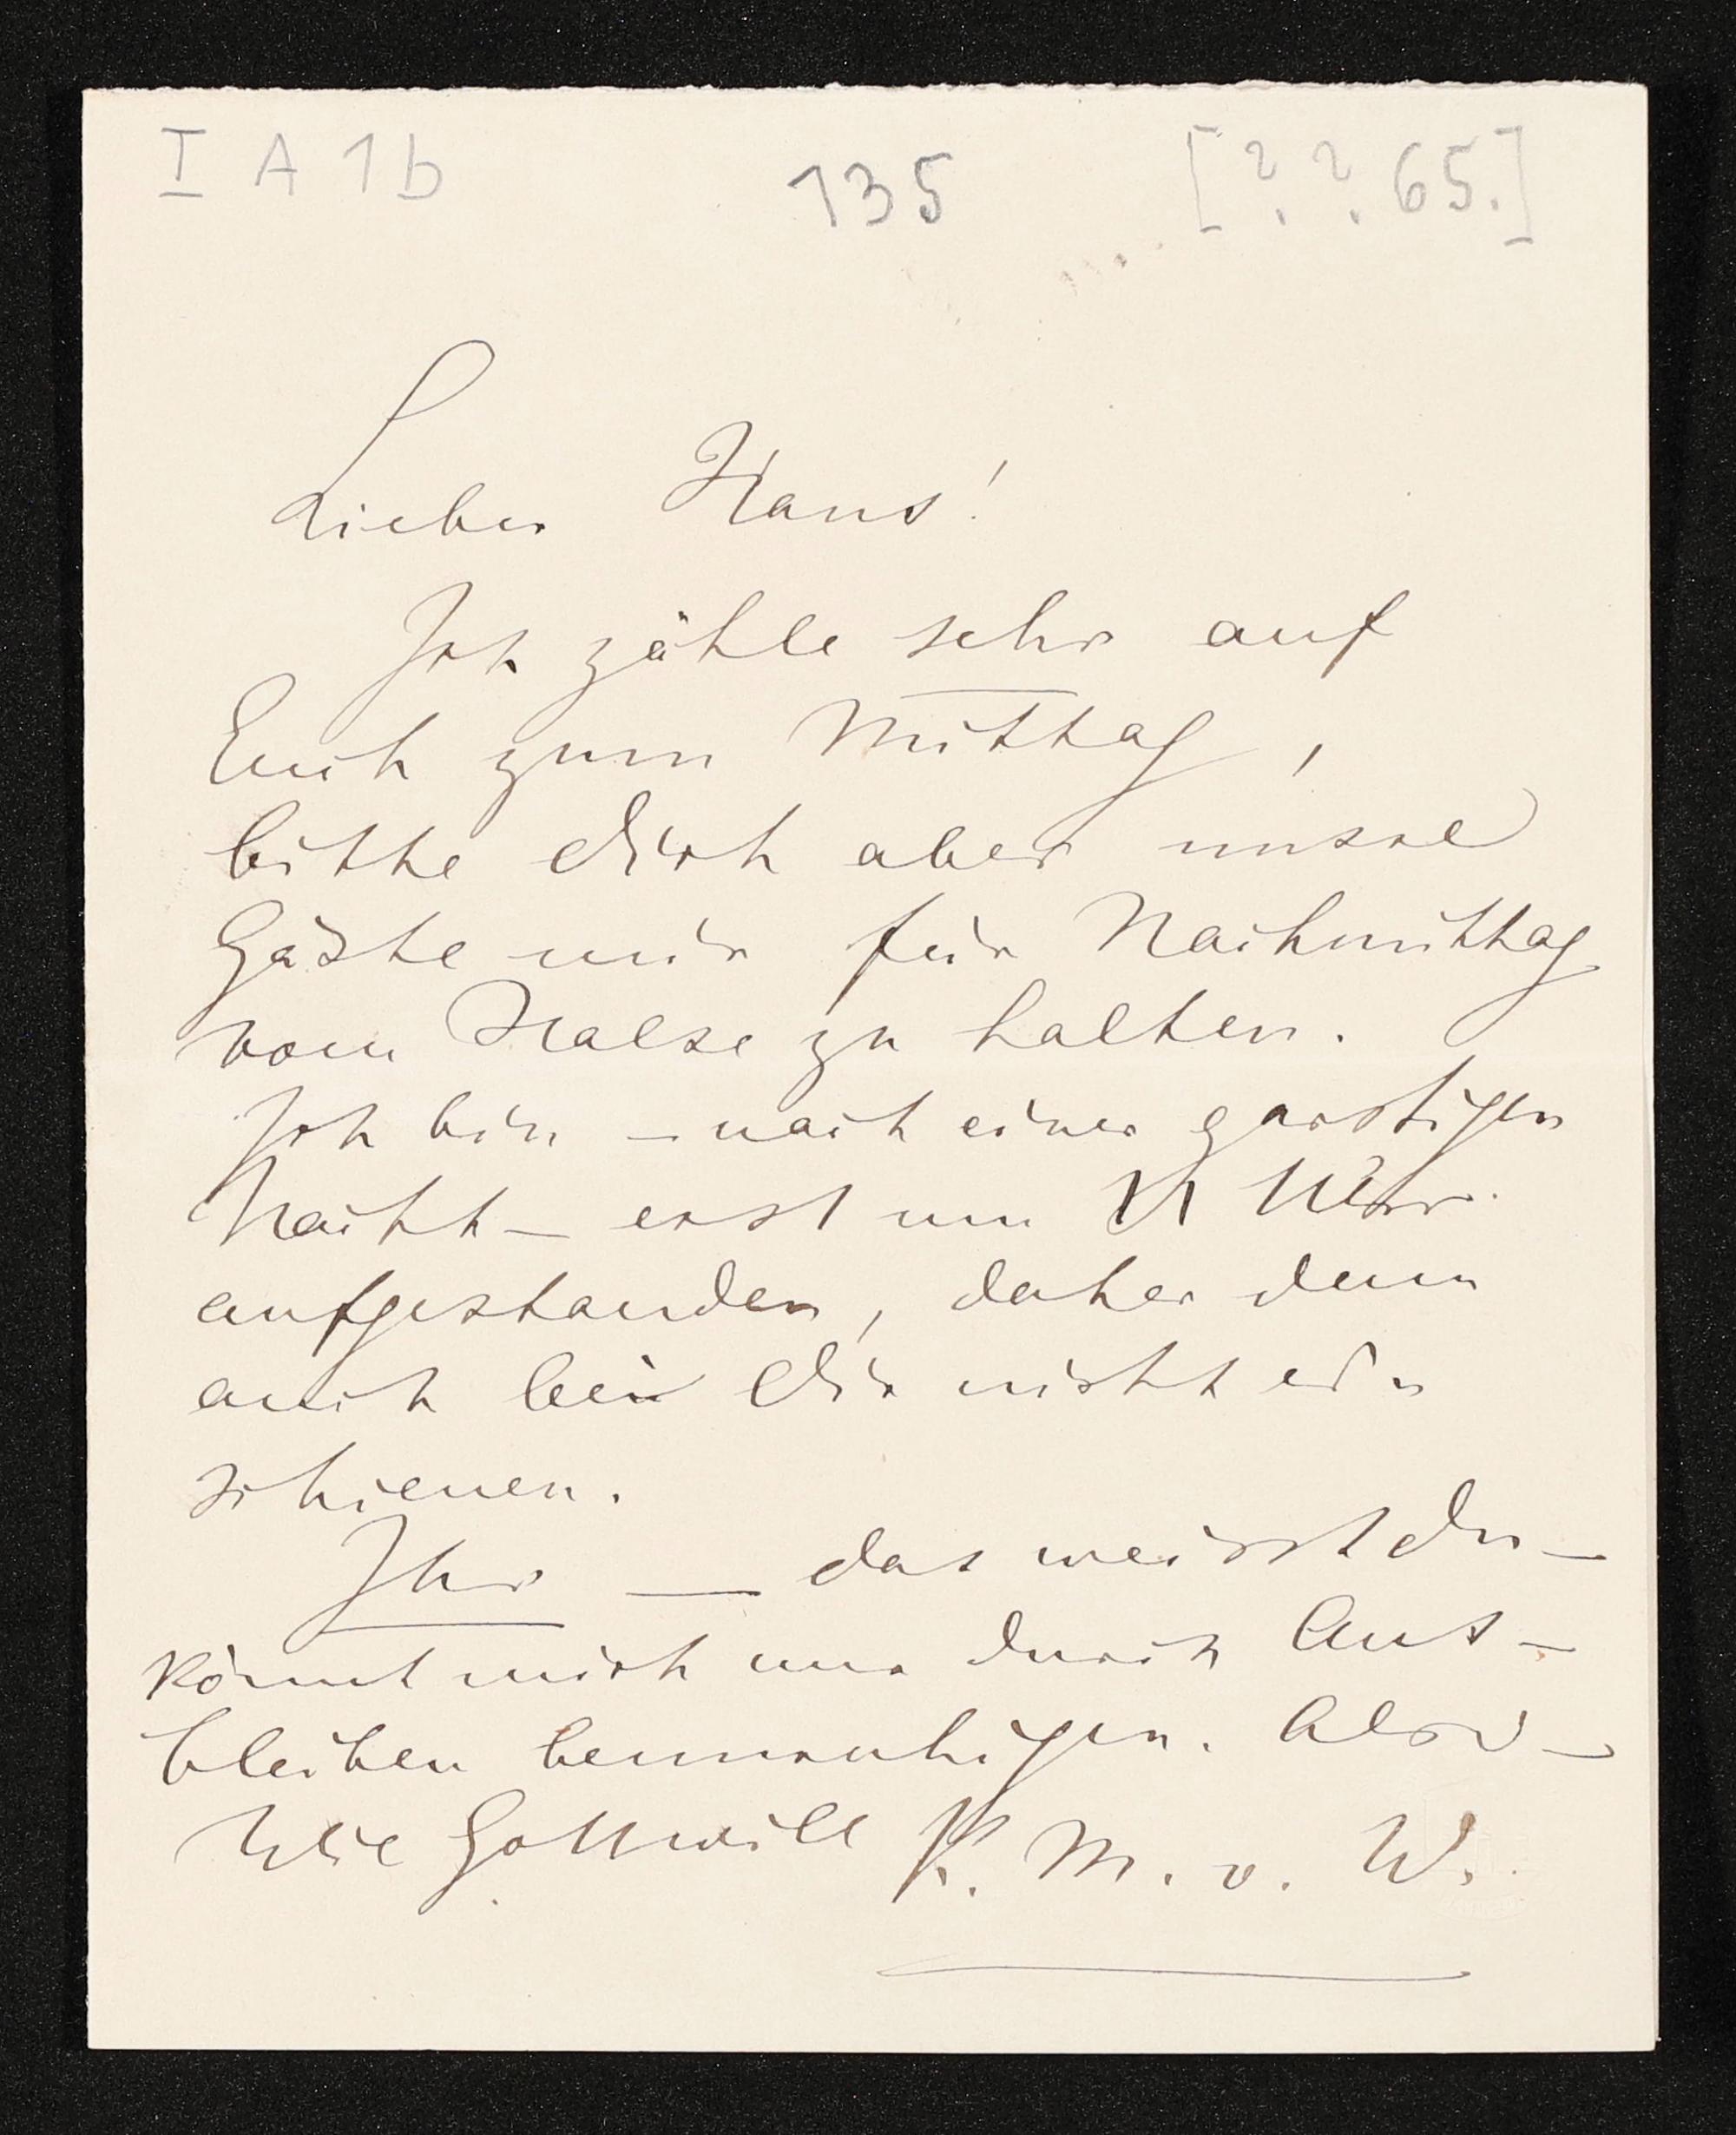 I A 1b 135 [?.?.65.]
Lieber Hans!
Ich zähle sehr auf
Euch zum Mittag,
bitte Dich aber unsre
Gäste mir für Nachmittag
vom Halse zu halten.
Ich bin – nach einer garstigen
Nacht – erst um 11 Uhr
aufgestanden, daher denn
auch bei Dir nicht er=
schienen.
Ihr — das weisst Du –
könnt mich nur durch Aus-
bleiben beunruhigen. Also –
Wie Gott will K. M. v. W.